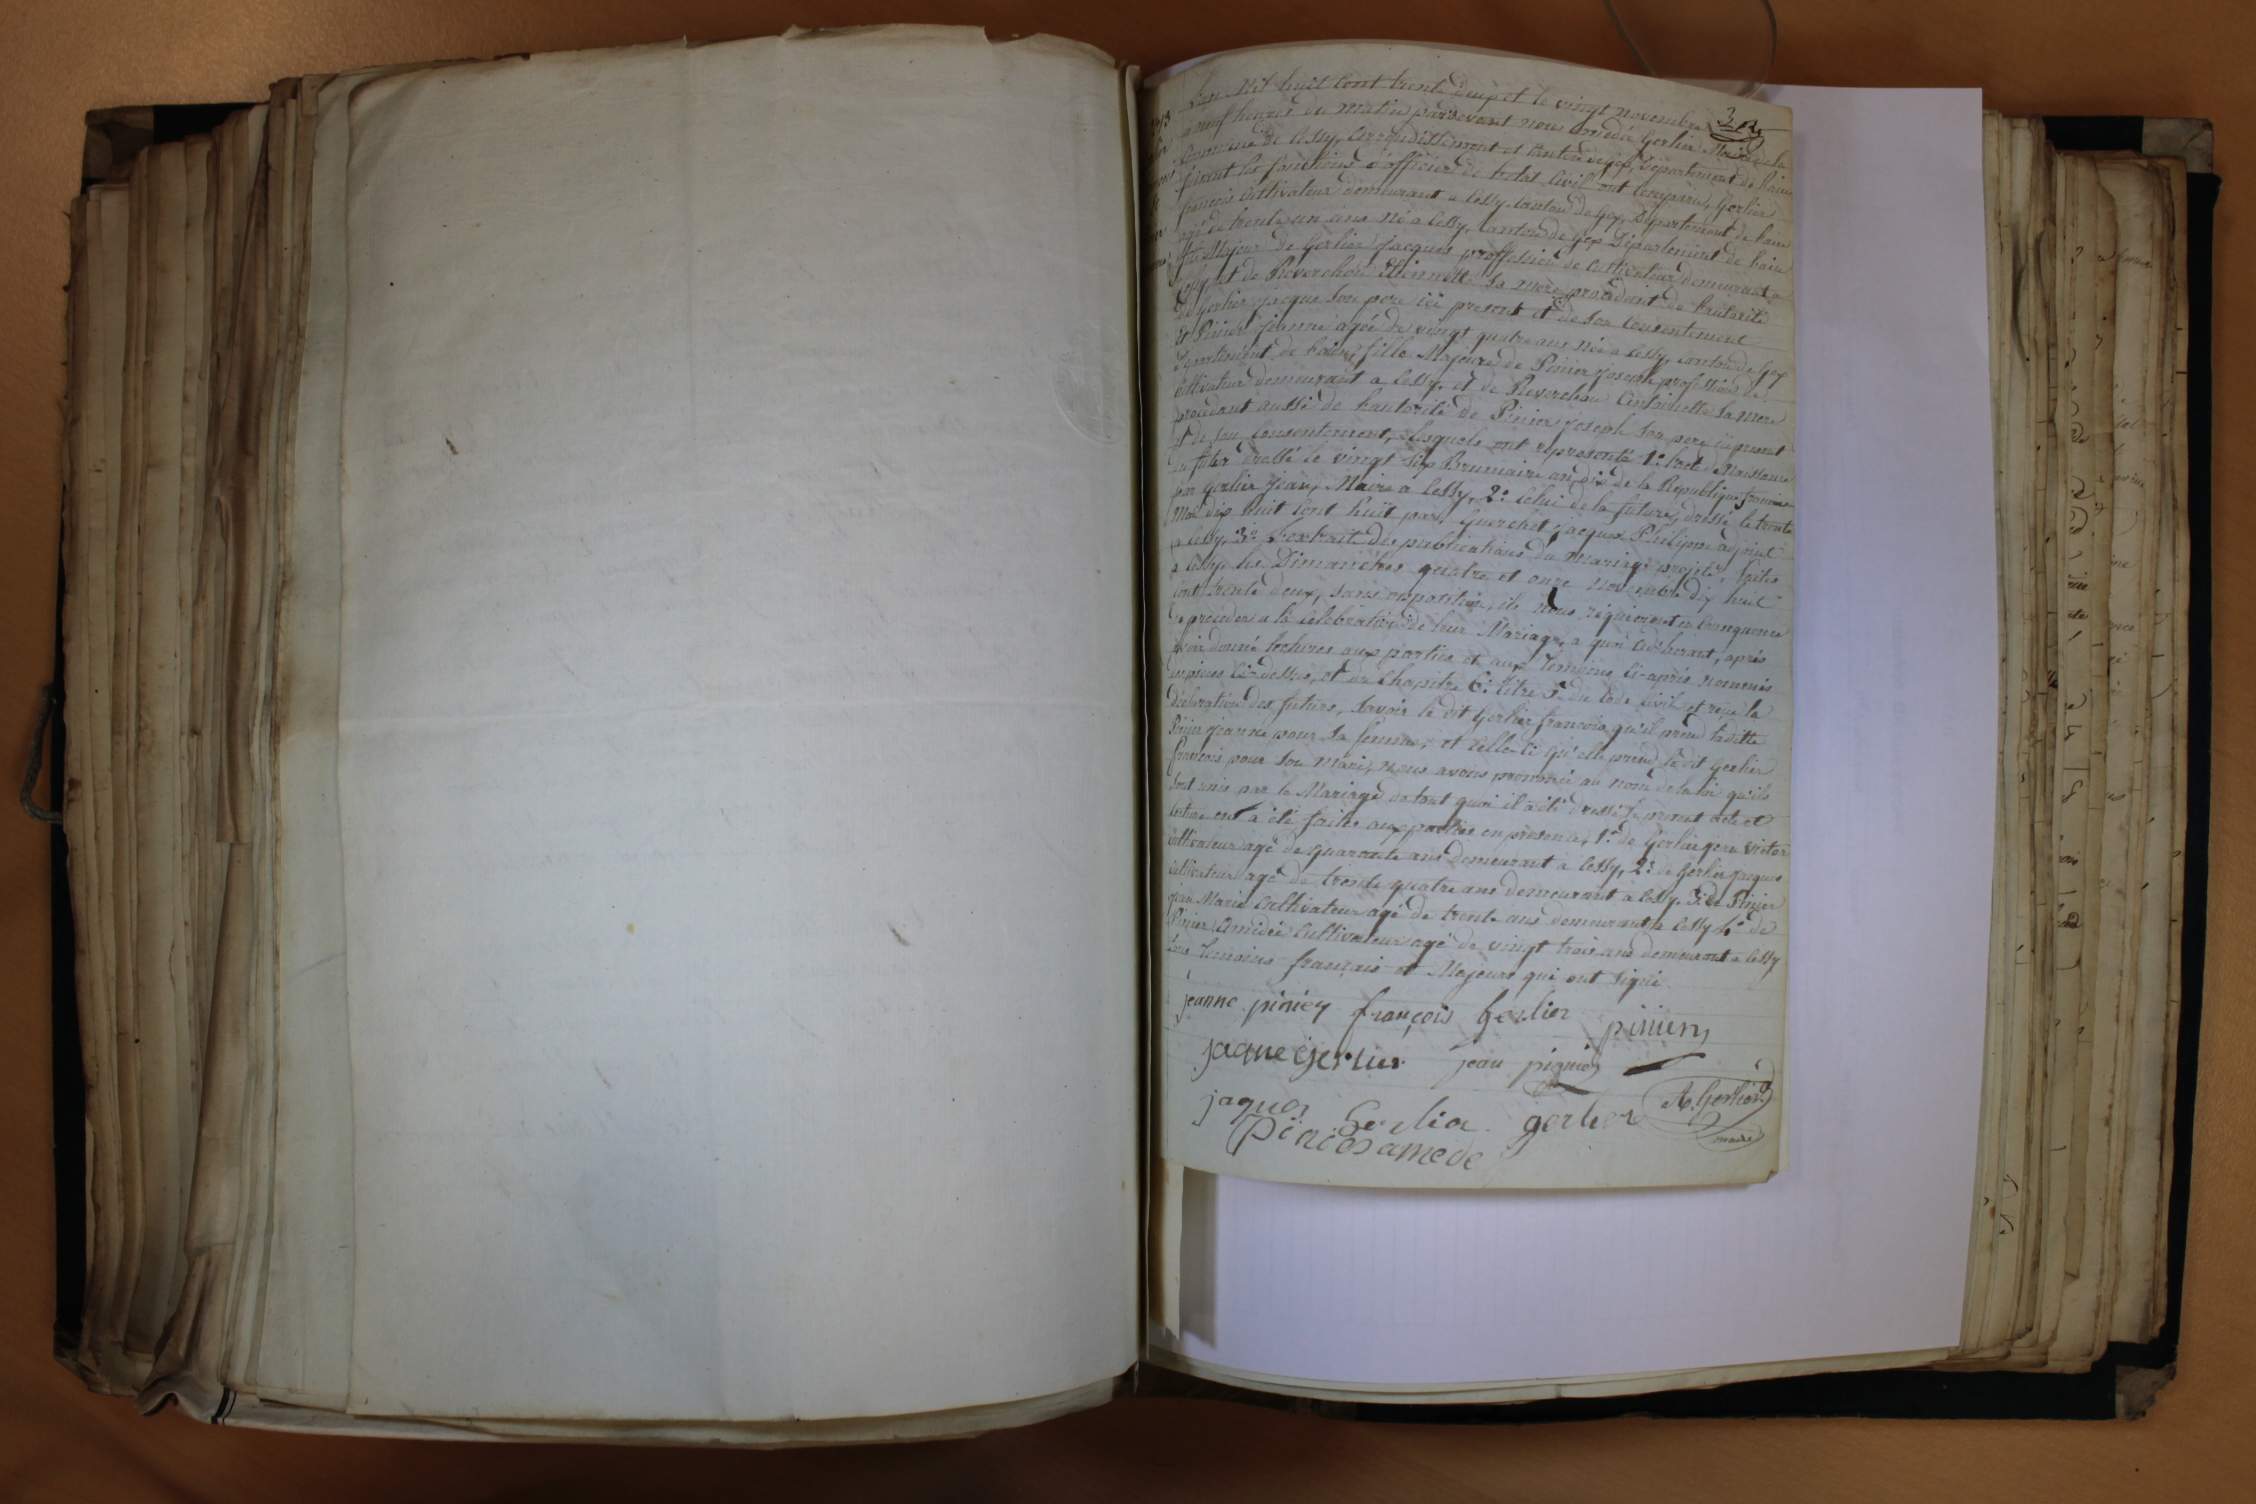 L'an Mil huit Cent trente deux et le vingt novembre
a neuf heures du matin pardevant nous amédé Gerlier Maire de la
Commune de Cessy, arrondissement et Canton de Gex, Département de l'ain
faisant les fonctions d'officier de l'état Civil ont comparu, Gerlier
françois Cultivateur demeurant a Cessy Canton de Gex, Département de l'ain
agé de trente un ans né a Cessy, Canton de Gex Département de l'ain
fils Majeur de Gerlier Jacques proffession de Cultivateur demeurant a
Cessy et de Reverchon Etiennette sa mere procédant de l'autorité
de Gerlier Jacque Son pere ici present et de son Consentement
Et Pinier Jeanne agée de vingt quatre ans née a Cessy, canton de Gex
Département de l'ain, fille Majeure de Pinier Joseph profession de
Cultivateur demeurant a Cessy, et de Reverchon Antoinette sa mere
procédant aussi de l'autorité de Pinier Joseph Son pere ici present
et de son Consentement, lesquels ont representé 1º l'acte de Naissance
du futur dressé le vingt Six Brumaire an Dix de la République française
par Gerlier Jean, Maire a Cessy, 2º celui de la future, dressé le trente
Mai dix huit cent huit par Guerchet Jacques Philippe adjoint
a Cessy, 3º L'extrait des publications du mariage projeté, faites
a Cessy les Dimanches quatre et onze novembre dix huit
cent trente deux, sans opposition, ils nous réquierent en Conséquence
de procéder a la célébration de leur Mariage, a quoi adhérant, après
avoir donné lectures aux parties et aux Témoins ci-après nommés
des pieces Ci-dessus, et du Chapitre 6º titre 5º du Code Civil et reçu la
déclaration des futurs, Savoir le dit Gerlier françois qu'il prend ladite
Pinier Jeanne pour Sa femme, et celle-ci qu'elle prend le dit Gerlier
françois pour Son Mari, nous avons prononcé au nom de la loi qu'ils
sont unis par le Mariage de tout quoi il a été dressé le present acte et
lecture en a été faite aux parties en présence, 1º de Gerlier Victor
Cultivateur agé de quarante ans demeurant a Cessy, 2º de Gerlier Jacques
Cultivateur agé de trente quatre ans demeurant a Cessy 3º de Pinier
Jean Marie Cultivateur agé de trente ans demeurant a Cessy 4º de
Pinier Amédée Cultivateur agé de vingt trois ans demeurant a Cessy
tous Temoins français et Majeurs qui ont signé
jeanne pinier françois Gerlier pinier
jaque Gerlier jean pignier
jaques Gerlier gerlier A. Gerlier
maire
Pinier amede